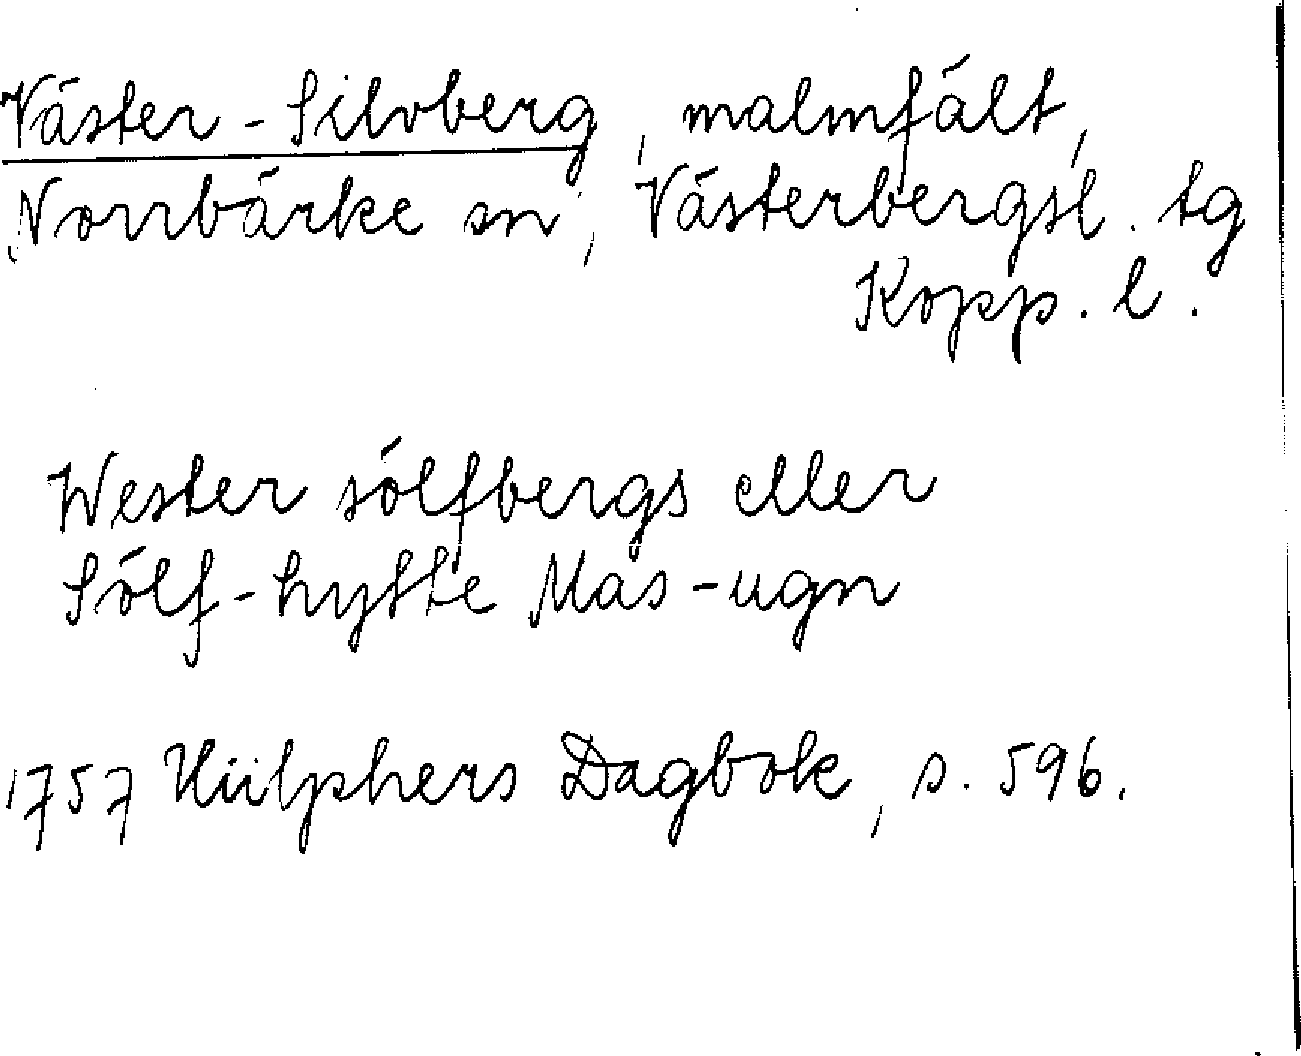 Väster-Silvberg, malmfält,
Norrbärke sn, Västerbergsl. tg
Kopp. l.
Wester sölfbergs eller
Sölf-hytte Mas-ugn
1757 Hülphers Dagbok, s. 596.